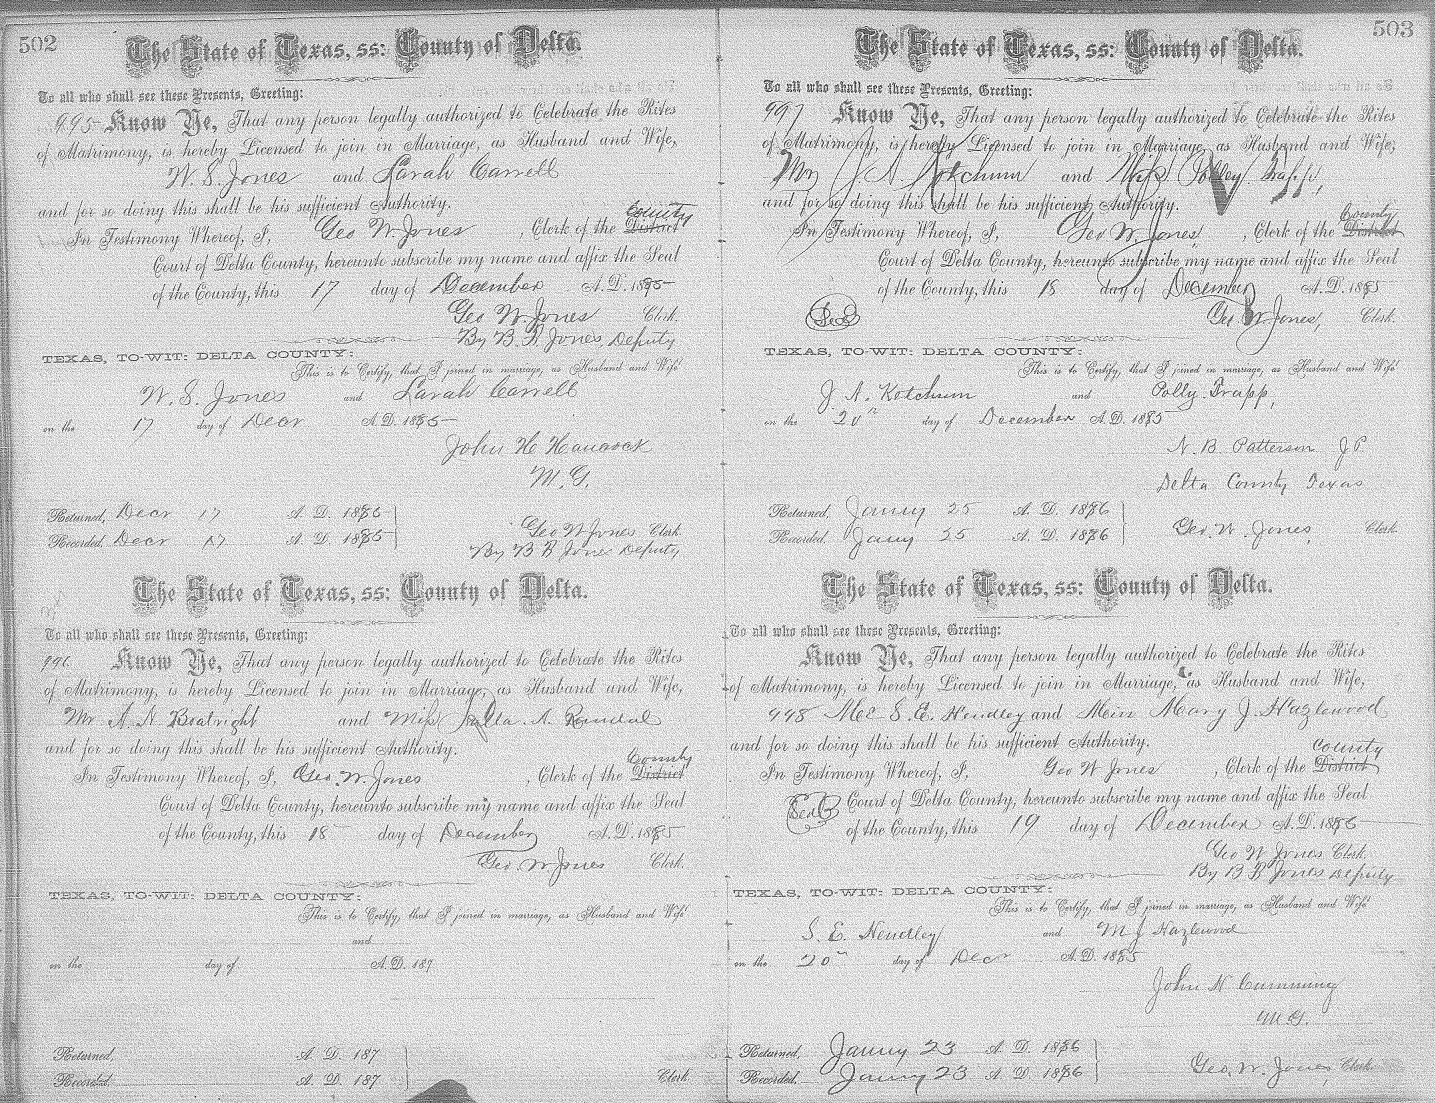 502
The State of Texas, ss: County of Delta.
To all who shall see these Presents, Greeting:
995 Know Ye, That any person legally authorized to Celebrate the Rites
of Matrimony, is hereby Licensed to join in Marriage, as Husband and Wife,
W. S. Jones and Sarah Carrell
and for so doing this shall be his sufficient Authority.
County
In Testimony Whereof, I, Geo W. Jones, Clerk of the District
Court of Delta County, hereunto subscribe my name and affix the Seal
of the County, this 17 day of December A. D. 1885
Geo W. Jones Clerk.
By B R Jones Deputy
TEXAS, TO-WIT: DELTA COUNTY:
This is to Certify, that I joined in marriage, as Husband and Wife
W. S. Jones and Sarah Carrell
on the 17 day of Decr A.D. 1885
John H Hancock
M. G.
Returned, Decr 17 A. D. 1885
Recorded, Decr 17 A. D. 1885
Geo W Jones Clerk
By B R Jones Deputy
The State of Texas, ss: County of Delta.
To all who shall see these Presents, Greeting:
996 Know Ye, That any person legally authorized to Celebrate the Rites
of Matrimony, is hereby Licensed to join in Marriage, as Husband and Wife,
Mr A. N Boatright and Miss A. Randal
and for so doing this shall be his sufficient Authority.
County
In Testimony Whereof, I, Geo. W. Jones, Clerk of the District
Court of Delta County, hereunto subscribe my name and affix the Seal
of the County, this 18 day of December A. D. 1885
Geo W Jones Clerk.
TEXAS, TO-WIT: DELTA COUNTY:
This is to Certify, that I joined in marriage, as Husband and Wife
and
on the day of A.D. 187
Returned, A. D. 187
Recorded, A. D. 187
Clerk
503
The State of Texas, ss: County of Delta.
To all who shall see these Presents, Greeting:
997 Know Ye, That any person legally authorized to Celebrate the Rites
of Matrimony, is hereby Licensed to join in Marriage, as Husband and Wife,
Mr J. A. Kotchum and Miss Polley Trapp,
and for so doing this shall be his sufficient Authority.
County
In Testimony Whereof, I, Geo W. Jones, Clerk of the District
Court of Delta County, hereunto subscribe my name and affix the Seal
of the County, this 18 day of December A. D. 1885
Seal
Geo W Jones Clerk.
TEXAS, TO-WIT: DELTA COUNTY:
This is to Certify, that I joined in marriage, as Husband and Wife
J. A. Kotchum and Polly Trapp,
on the 20th day of December A.D. 1885
N. B. Patterson J P
Delta County Texas
Returned, Janry 25 A. D. 1886
Recorded, Janry 25 A. D. 1886
Geo. W. Jones, Clerk.
The State of Texas, ss: County of Delta.
To all who shall see these Presents, Greeting:
Know Ye, That any person legally authorized to Celebrate the Rites
of Matrimony, is hereby Licensed to join in Marriage, as Husband and Wife,
998 S. E. Hendley and Mary J. Hazlewood
and for so doing this shall be his sufficient Authority.
County
In Testimony Whereof, I, Geo W Jones, Clerk of the District
Seal Court of Delta County, hereunto subscribe my name and affix the Seal
of the County, this 19 day of December A. D. 1886
Geo W Jones Clerk.
By B R Jones Deputy
TEXAS, TO-WIT: DELTA COUNTY:
This is to Certify, that I joined in marriage, as Husband and Wife
S. E. Hendley and M J Hazlewood
on the 20th day of Decr A.D. 1885
John N Cumming
M G.
Returned, Janry 23 A. D. 1886
Recorded, Janry 23 A. D. 1886
Geo. W. Jones, Clerk.